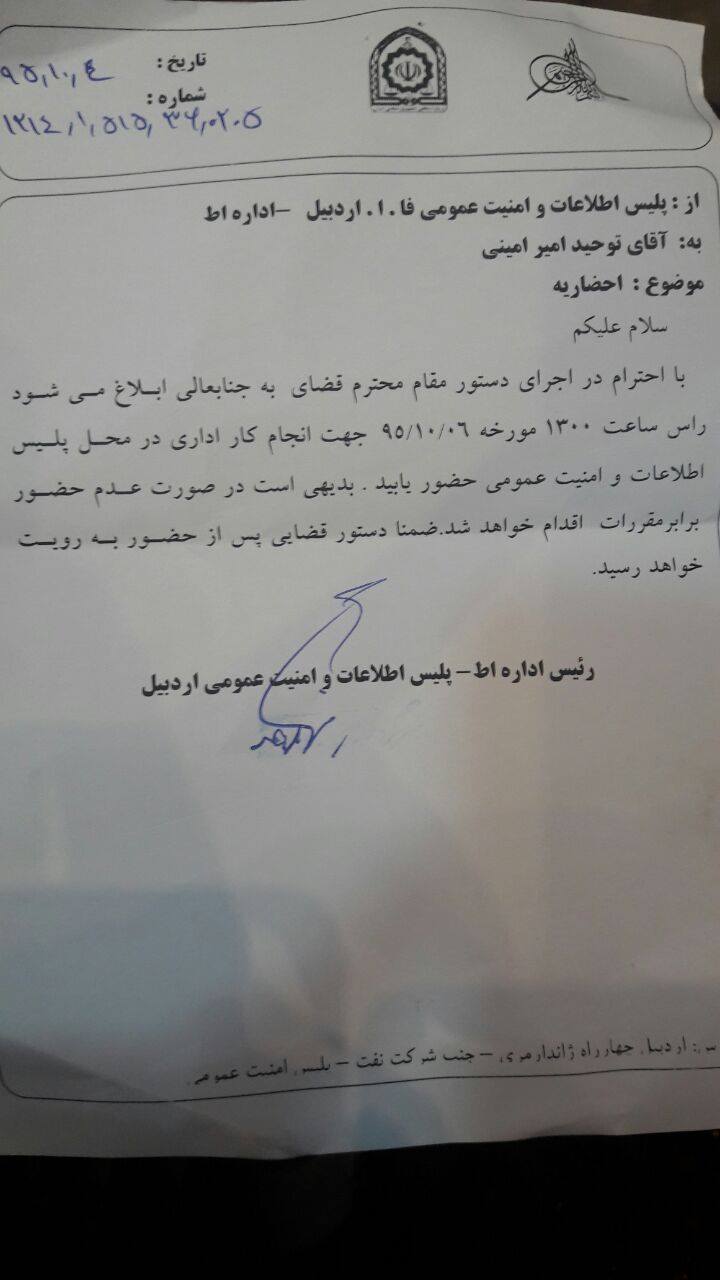 تاریخ : ۹۵,۱۰,۴
شماره : ۱۲۱۴,۱,۵۱۵,۳۶,۰۲۰۵
از : پلیس اطلاعات و امنیت عمومی فا . ا . اردبیل –اداره اط
به: آقای توحید امیر امینی
موضوع : احضاریه
سلام علیکم
با احترام در اجرای دستور مقام محترم قضای به جنابعالی ابلاغ می شود
راس ساعت ۱۳۰۰ مورخه ۹۵/۱۰/۰۶ جهت انجام کار اداری در محل پلیس
اطلاعات و امنیت عمومی حضور یابید . بدیهی است در صورت عدم حضور
برابرمقررات اقدام خواهد شد.ضمنا دستور قضایی پس از حضور به رویت
خواهد رسید.
رئیس اداره اط– پلیس اطلاعات و امنیت عمومی اردبیل
اردبیل چهارراه ژاندارمری – جنب شرکت نفت – پلیس امنیت عمومی